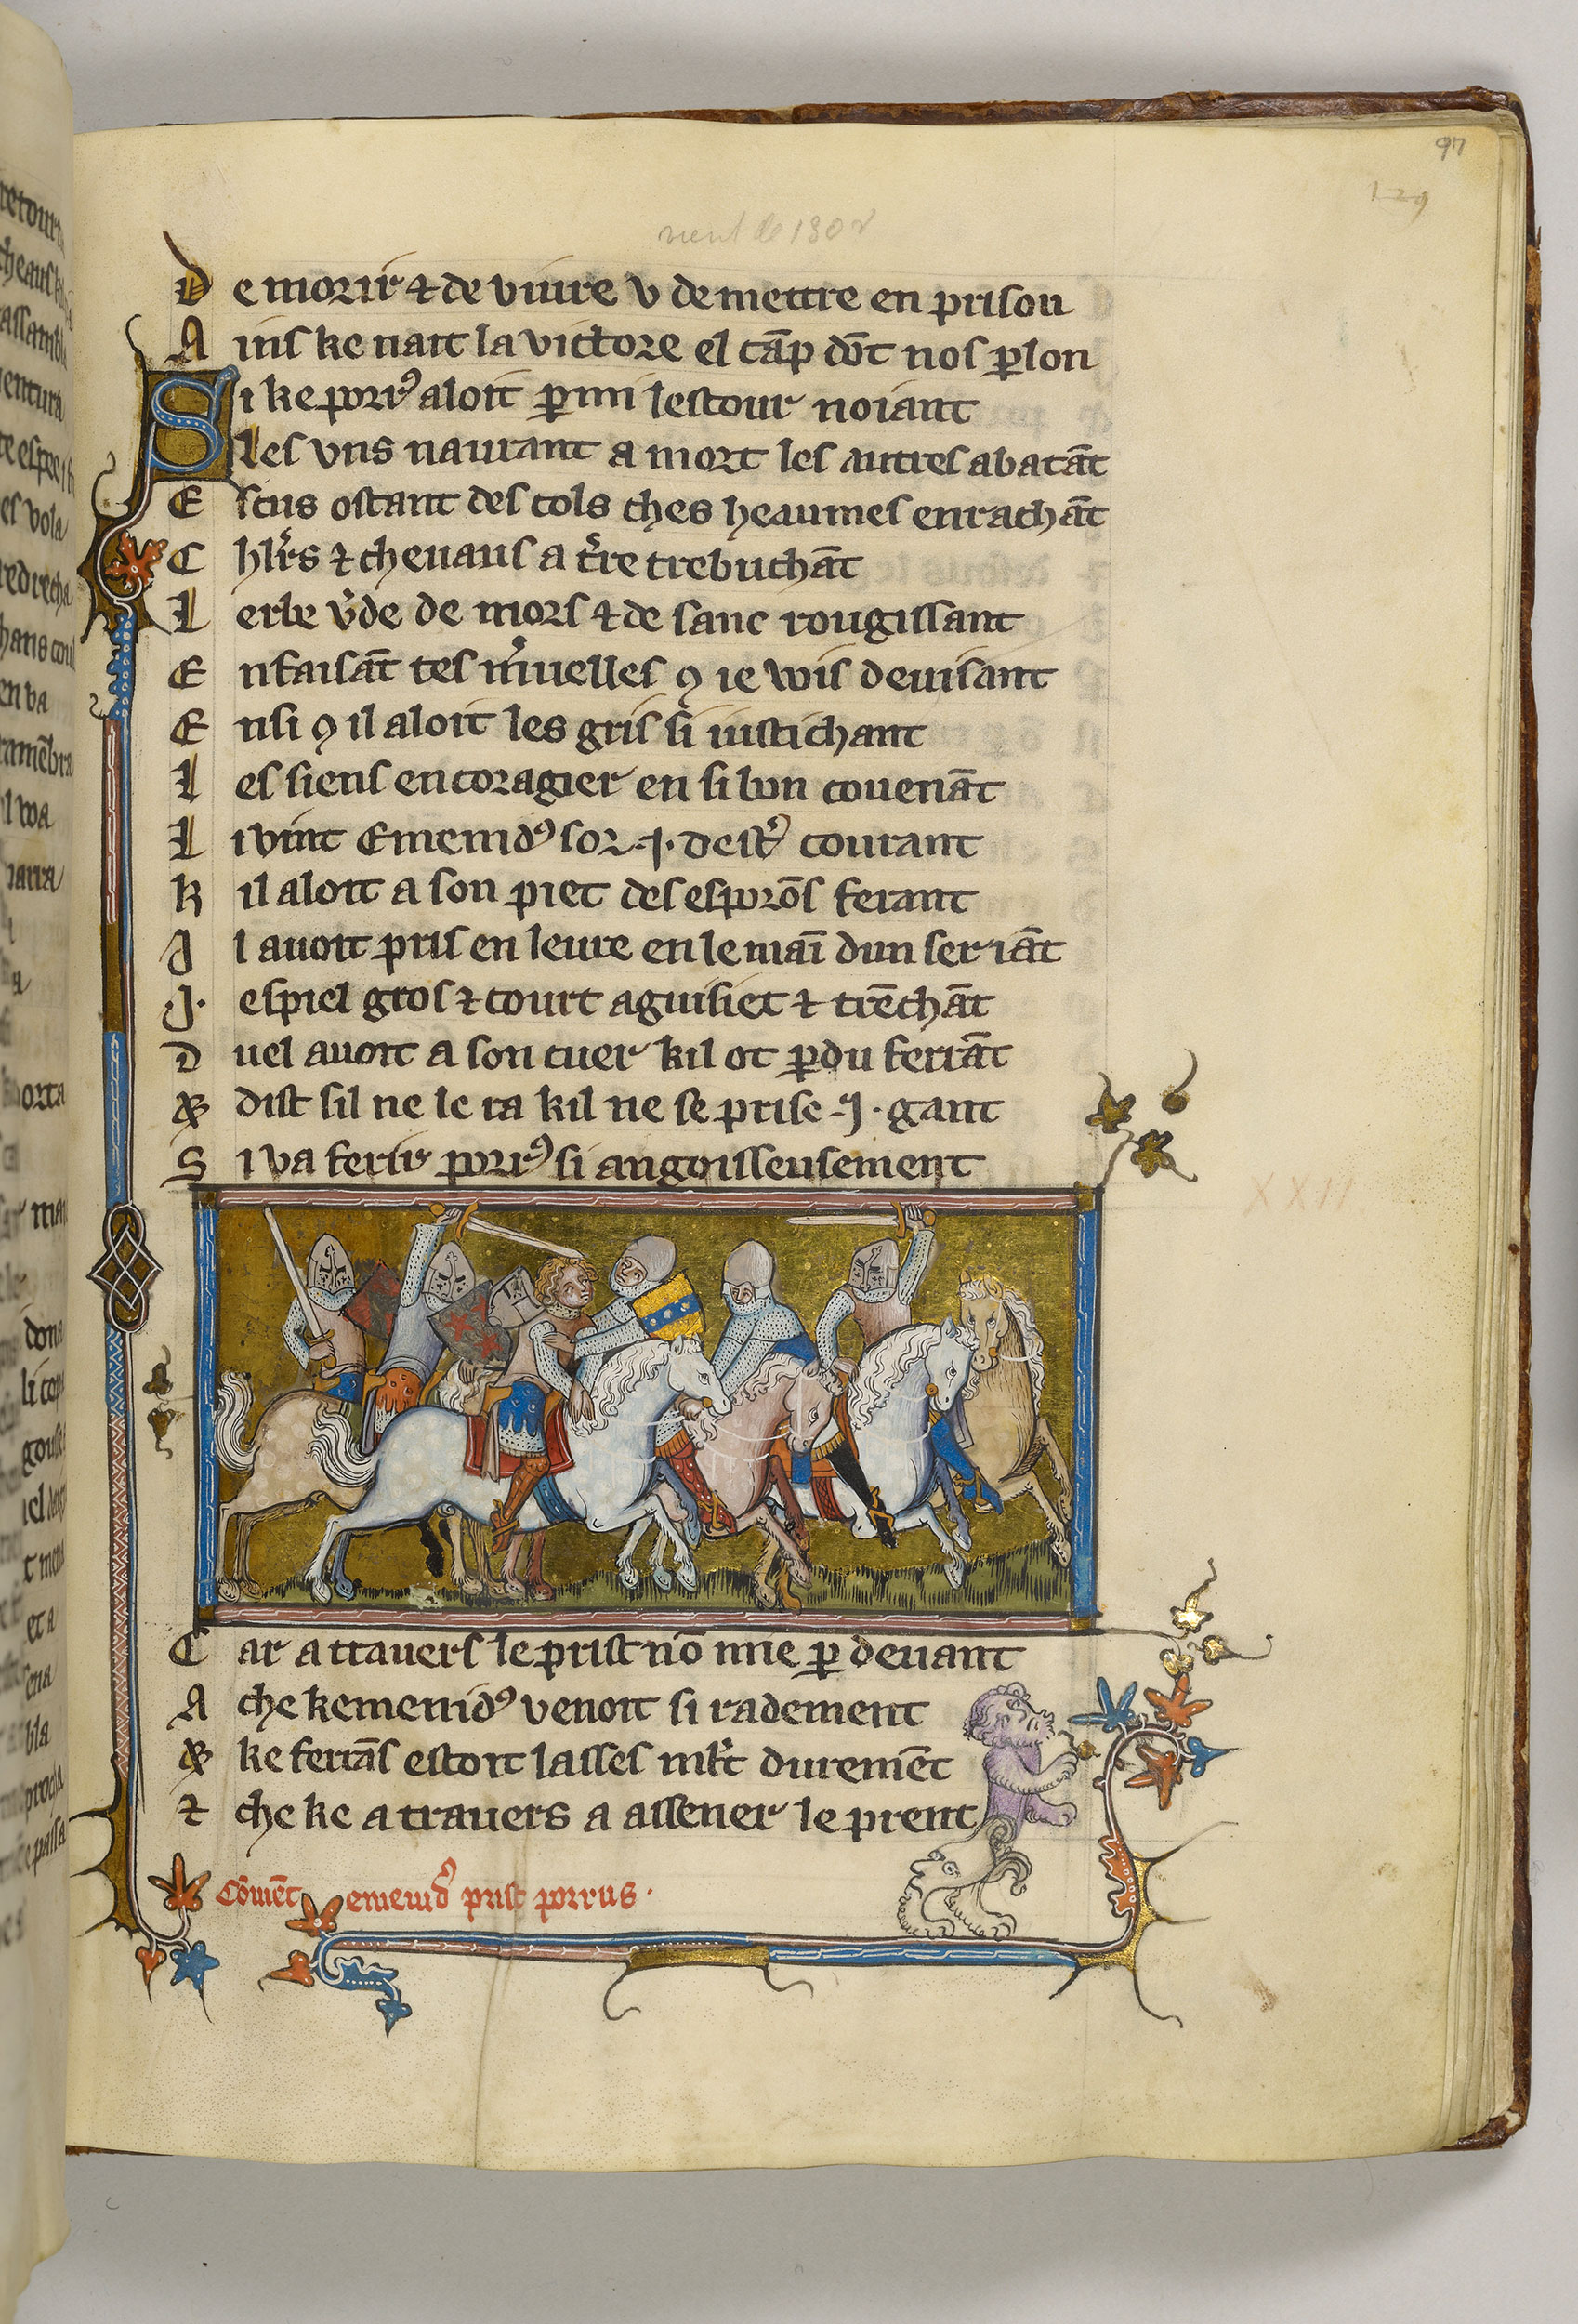 97
129
De morir ⁊ de viure v de mettre en prison
Ains ke nait la victore el cāp dōt nos ꝑlon
Si ke porrꝰ aloit ꝑmi lestour noiant
les vns naurant a mort les autres abatāt
Escus ostant des cols ches heaumes enrachāt
Chlr̄s ⁊ cheuaus a t̄re trebuchāt
Lerbe v̄de de mors ⁊ de sanc rougissant
En faisāt tes m̄uelles ꝯ ie wis deuisant
Ensi ꝯ il aloit les gris si iustichant
Les siens encoragier en si bon couenāt
Li vint Emenidꝰ sor .j. destꝰ courant
Kil aloit a son piet des esporōs ferant
Il auoit pris en leure en le maī dun seriāt
.J. espiel gros ⁊ court aguisiet ⁊ trēchāt
Duel auoit a son cuer kil ot ꝑdu ferrāt
⁊ dist sil ne le ra kil ne se prise .j. gant
Si va ferir porrꝰ si angoisseusement
XXII
Car a trauers le prist nō mie ꝑ deuant
A che kemenidꝰ venoit si radement
⁊ ke ferrās estoit lasses mlt̄ duremēt
⁊ che ke a trauers a assener le prent
Cōmēt emenidꝰ prist porrus.